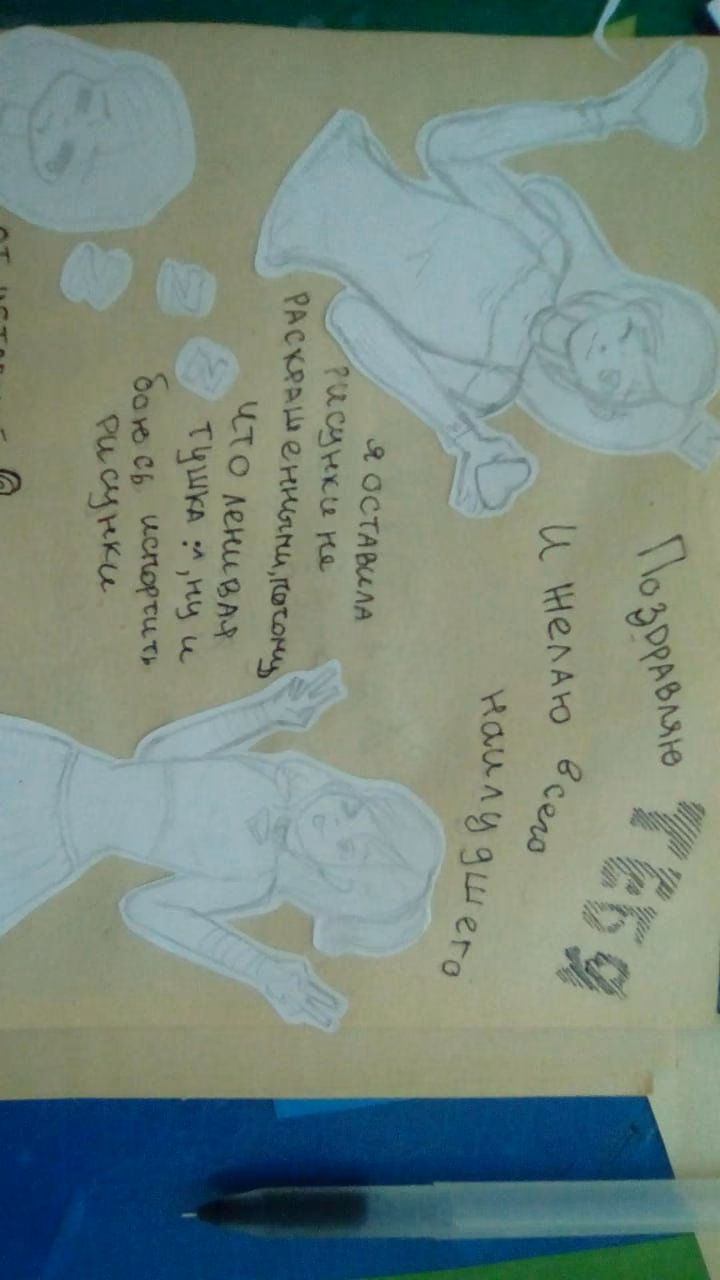 Поздравляю
ТЕБЯ
И желаю всего
наилудшего
я оставила
рисунки не
раскрашенными, потому
что ленивая
тушка :^, ну и
боюсь испортить
рисунки
Z
Z
Z
от